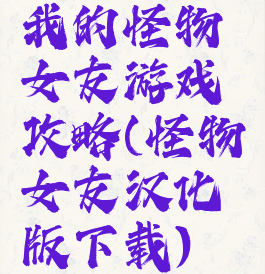 我的怪物
女友游戏
攻略(怪物
女友汉化
版下载)